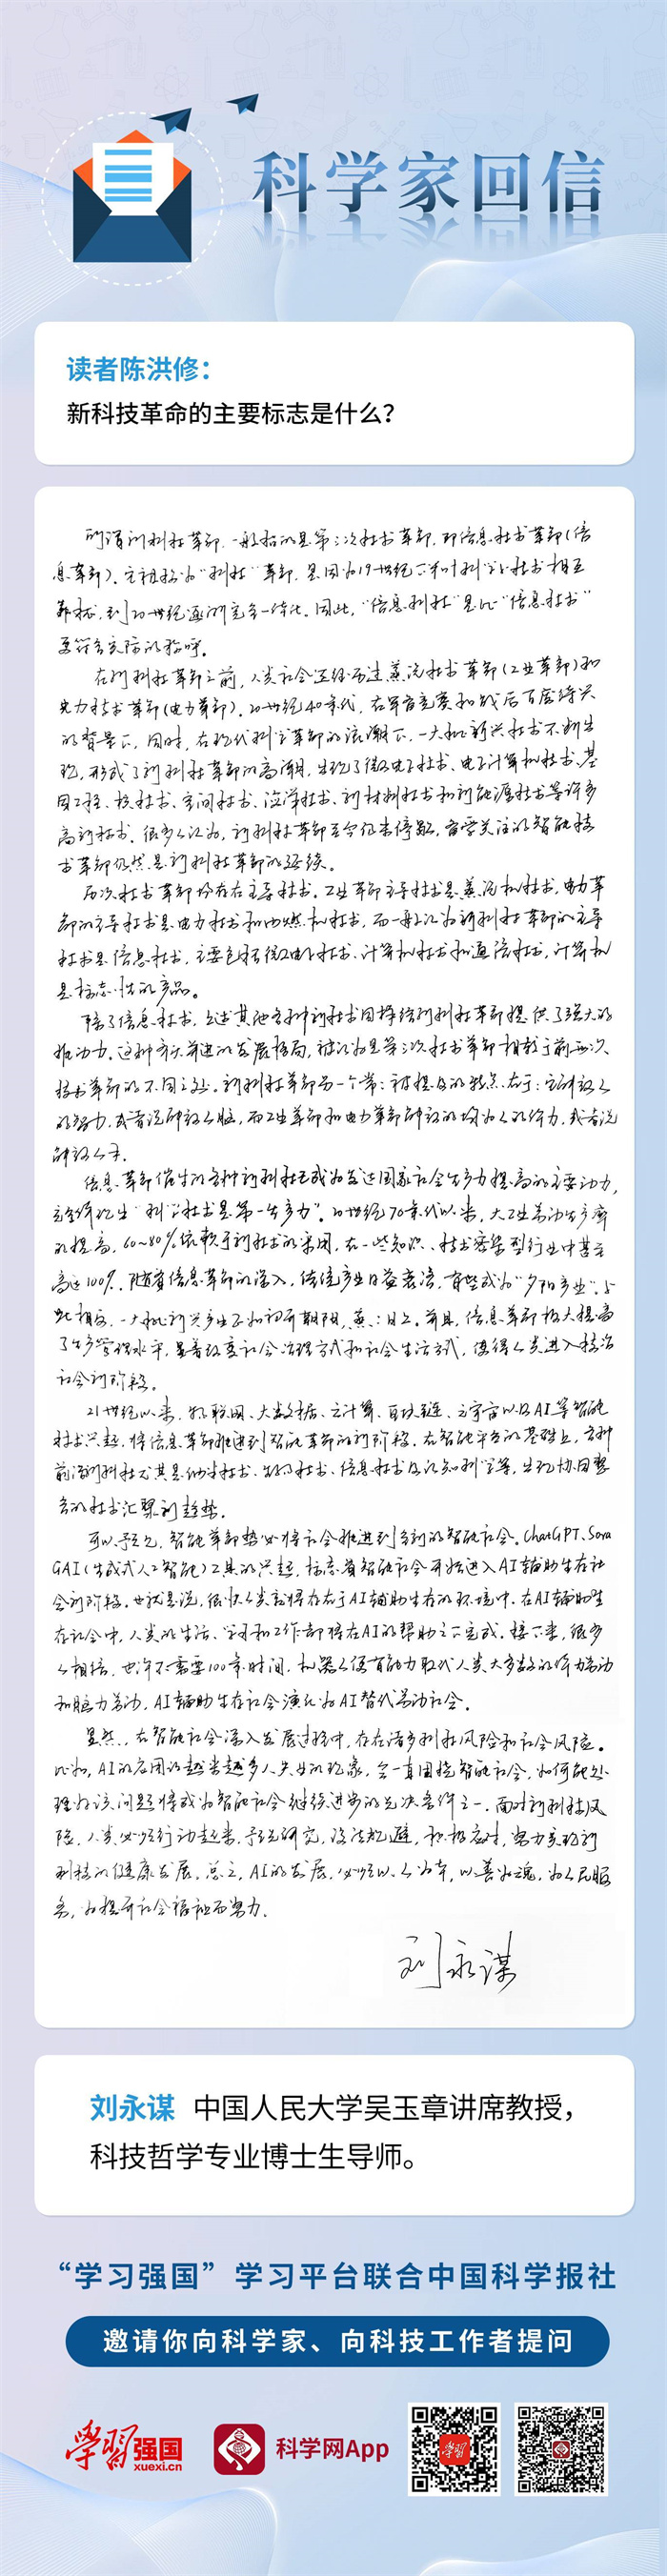 科学家回信
读者陈洪修：
新科技革命的主要标志是什么？
所谓新科技革命，一般指的是第三次技术革命，即信息技术革命（信
息革命）。之被称为“科技”革命，是因为19世纪下半叶科学与技术相互
到20世纪逐渐完全一体化。因此，“信息科技”是比“信息技术”
更符合实际的称呼。
在新科技革命之前，人类社会已经历过蒸汽技术革命（工业革命）和
电力技术革命（电力革命）。20世纪40年代，在军备竞赛和战后百废待兴
的背景下，同时，在现代科学革命的浪潮下，一大批新兴技术不断出
现，形成了新科技革命的高潮，出现了微电子技术、电子计算机技术、基
因工程、核技术、空间技术、海洋技术、新材料技术和新能源技术等许多
高新技术。很多人认为，新科技革命至今仍未停歇，备受关注的智能技
术革命仍然是新科技革命的延续。
历次技术革命均存在主导技术。工业革命主导技术是蒸汽机技术，电力革
命的主导技术是电力技术和内燃机技术，而一般认为新科技革命的主导
技术是信息技术，主要包括微电子技术、计算机技术和通信技术，计算机
是标志性的产品。
除了信息技术，上述其他各种新技术同样给新科技革命提供了强大的
推动力。这种齐头并进的发展格局，被认为是第三次技术革命相较于前两次
技术革命的不同之处。新科技革命另一个常被提及的特点在于：它解放人
的智力，或者说解放人脑，而工业革命和电力革命解放的均为人的体力，或者说
解放人手。
信息革命催生的各种新科技已成为发达国家社会生产力提高的主要动力，
充分体现出“科学技术是第一生产力”。20世纪70年代以来，大工业劳动生产率
的提高，60~80%依赖于新技术的采用，在一些知识、技术密集型行业中甚至
高达100%。随着信息革命的深入，传统产业日益衰落，有些成为“夕阳产业”。与
此相反，一大批新兴产业正如初升朝阳，蒸蒸日上。并且，信息革命极大提高
了生产管理水平，显著改变社会治理方式和社会生活方式，使得人类进入技治
社会新阶段。
21世纪以来，物联网、大数据、云计算、区块链、元宇宙以及AI等智能
技术兴起，将信息革命推进到智能革命的新阶段。在智能平台的基础上，各种
前沿新科技尤其是纳米技术、生物技术、信息技术及认知科学等，出现协同整
合的技术汇聚新趋势。
可以预见，智能革命势必将社会推进到全新的智能社会。ChatGPT、Sora
GAI（生成式人工智能）工具的兴起，标志着智能社会开始进入AI辅助生存社
会新阶段。也就是说，很快人类就将存在于AI辅助生存的环境中。在AI辅助生
存社会中，人类的生活、学习和工作都将在AI的帮助之下完成。接下来，很多
人相信，也许不需要100年时间，机器人便有能力取代人类大多数的体力劳动
和脑力劳动，AI辅助生存社会演化为AI替代劳动社会。
显然，在智能社会深入发展过程中，存在诸多科技风险和社会风险。
比如，AI的应用让越来越多人失业的现象，会一直困扰智能社会，如何能处
理好该问题将成为智能社会继续进步的先决条件之一。面对新科技风
险，人类必须行动起来，预先研究，设法规避，积极应对，努力实现新
科技的健康发展。总之，AI的发展，必须以人为本，以善为魂，为人民服
务，为提升社会福祉而努力。
刘永谋
刘永谋 中国人民大学吴玉章讲席教授，
科技哲学专业博士生导师。
“学习强国”学习平台联合中国科学报社
邀请你向科学家、向科技工作者提问
学习强国
xuexi.cn
科学网App